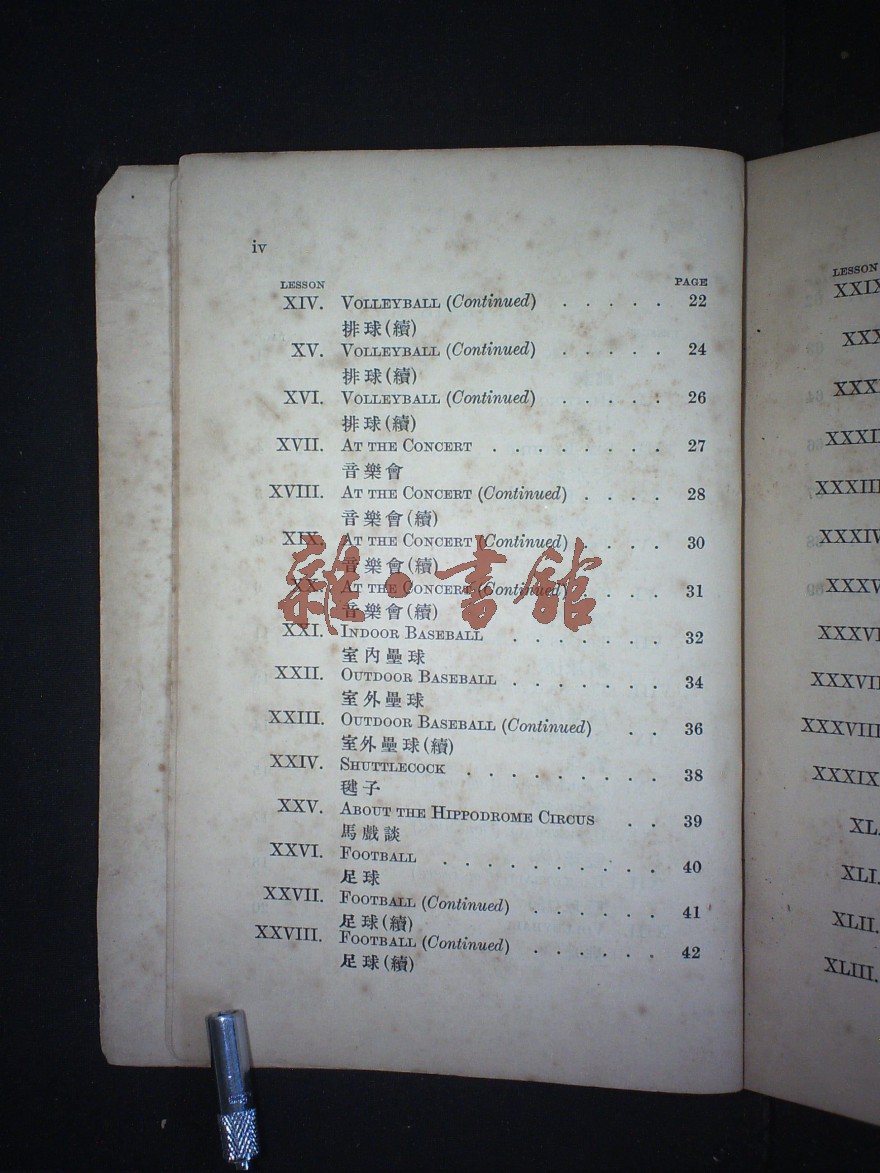 iv
LESSON PAGE
XIV. VOLLEYBALL (Continued) . . . . . 22
排球(續)
XV. VOLLEYBALL (Continued) . . . . . 24
排球(續)
XVI. VOLLEYBALL (Continued) . . . . . 26
排球(續)
XVII. AT THE CONCERT . . . . . . . . 27
音樂會
XVIII. AT THE CONCERT (Continued) . . . . 28
音樂會(續)
XIX. AT THE CONCERT (Continued) . . . 30
音樂會(續)
XX. AT THE CONCERT (Continued) . . . 31
音樂會(續)
雜·書館
XXI. INDOOR BASEBALL . . . . . . . 32
室內壘球
XXII. OUTDOOR BASEBALL . . . . . . . 34
室外壘球
XXIII. OUTDOOR BASEBALL (Continued) . . 36
室外壘球(續)
XXIV. SHUTTLECOCK . . . . . . . . . 38
毽子
XXV. ABOUT THE HIPPODROME CIRCUS . . 39
馬戲談
XXVI. FOOTBALL . . . . . . . . . . 40
足球
XXVII. FOOTBALL (Continued) . . . . . . 41
足球(續)
XXVIII. FOOTBALL (Continued) . . . . . . 42
足球(續)
LESSON
XXXIII
XXXVII
XXXVIII
XL.
XLI.
XLII.
XLIII.